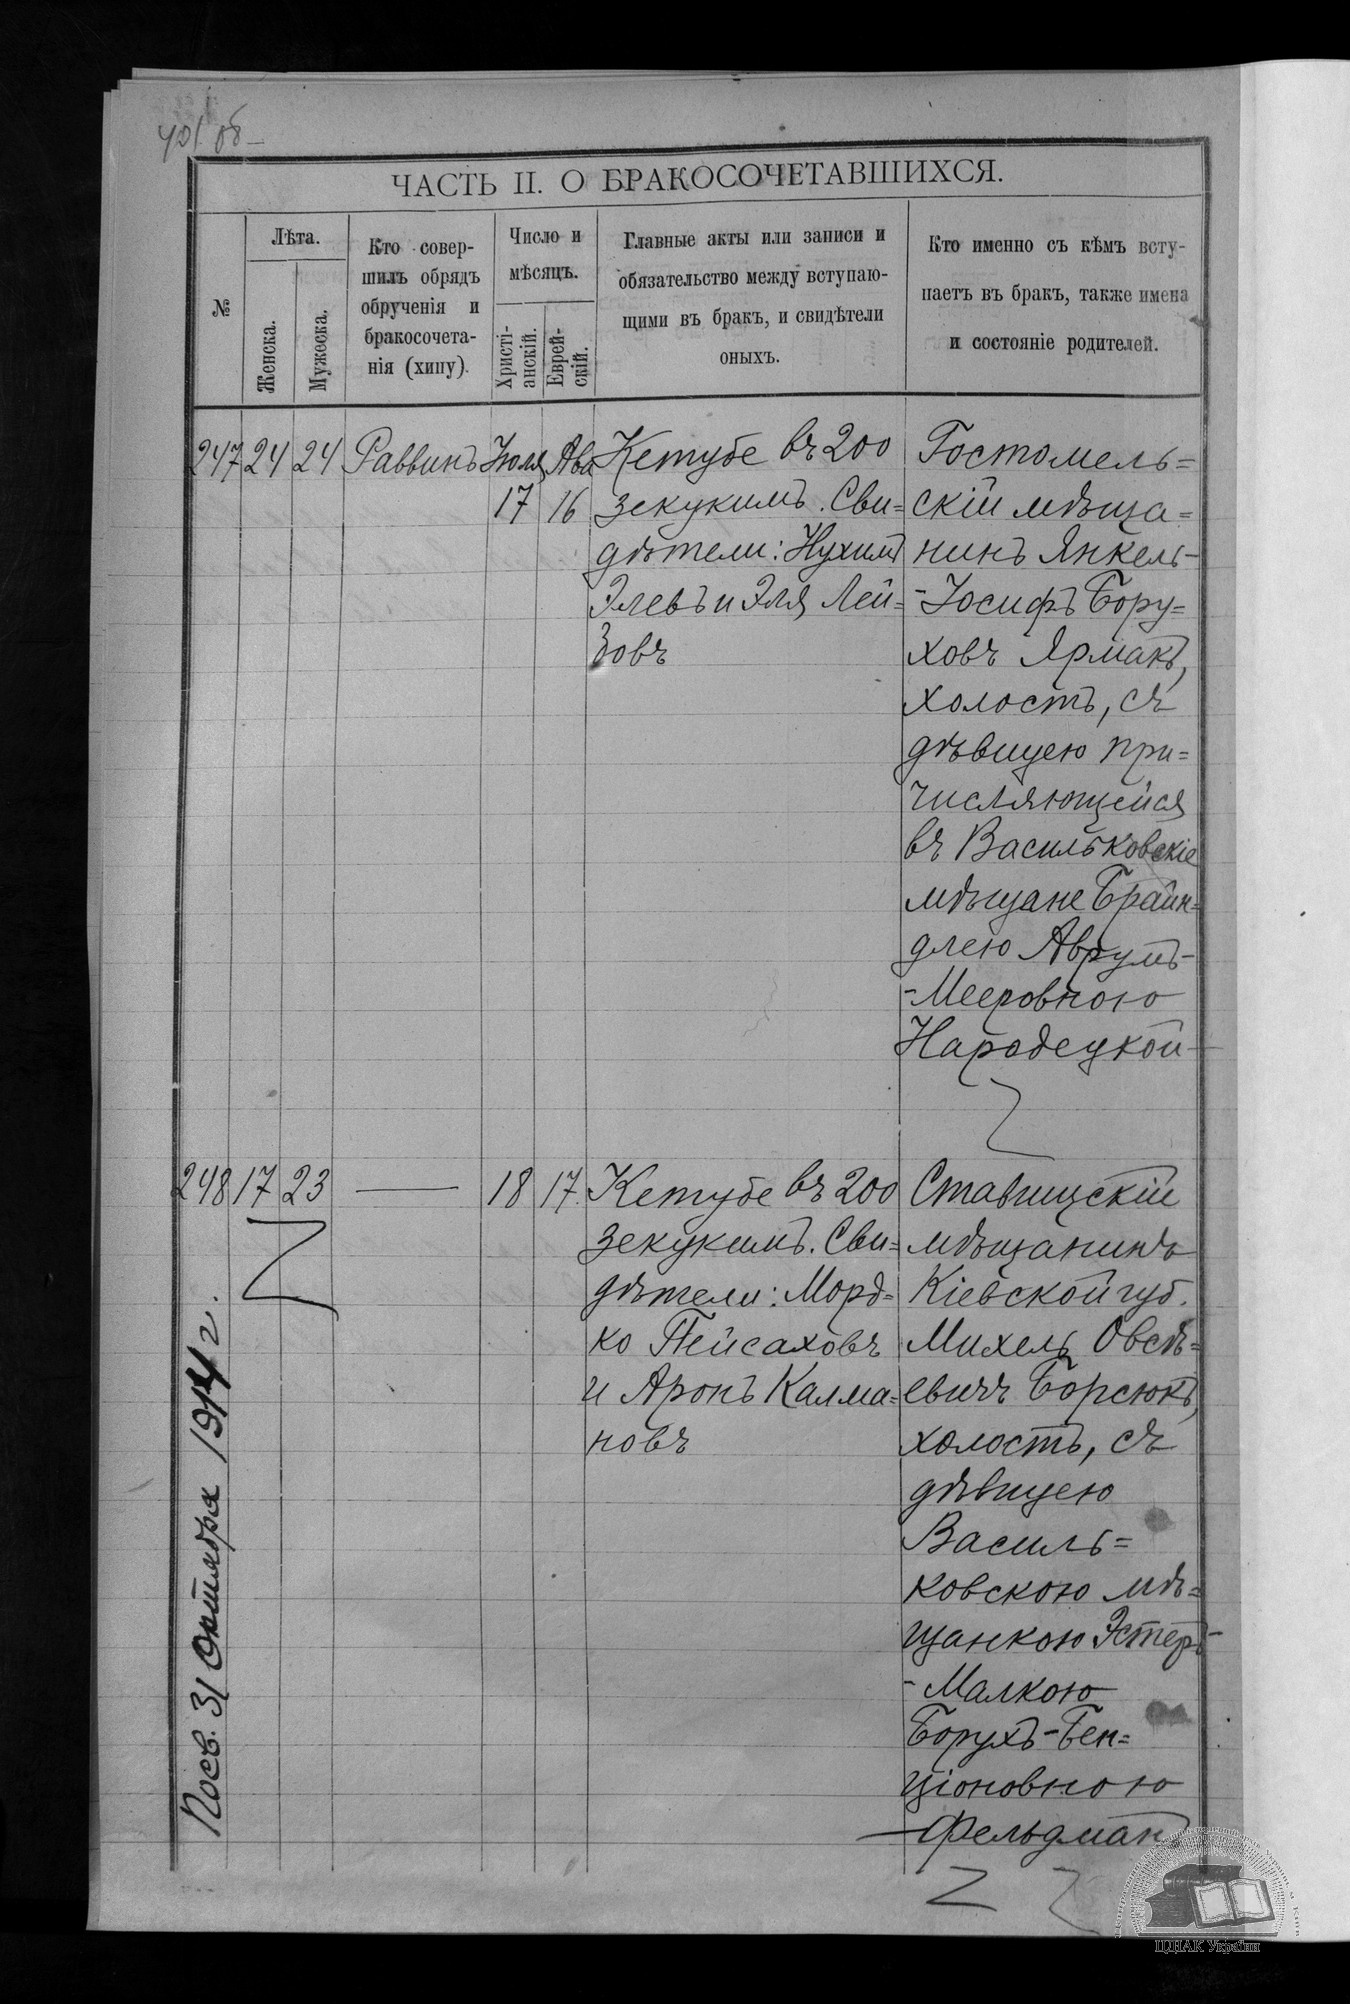 401 об
ЧАСТЬ II. О БРАКОСОЧЕТАВШИХСЯ.
№
Лѣта.
Женска.
Мужеска.
Кто совер-
шилъ обрядъ
обрученія и
бракосочета-
нія (хипу).
Число и
мѣсяцъ.
Христі-
анскій.
Еврей-
скій.
Главные акты или записи и
обязательство между вступаю-
щими въ бракъ, и свидѣтели
оныхъ.
Кто именно съ кѣмъ всту-
паетъ въ бракъ, также имена
и состояніе родителей.
247 24 24 Раввинъ Іюля Ава
17 16
Кетубе въ 200
зекукимъ. Сви=
дѣтели: Нухимъ
Элевъ и Эля Лей=
зовъ
Гостомель=
скій мѣща=
нинъ Янкель-
-Іосифъ Бору=
ховъ Ярмакъ,
холостъ, съ
дѣвицею при=
числяющейся
въ Васильковскіе
мѣщане Брайн=
длею Аврумъ-
-Мееровною
Народецкой
248 17 23 — 18 17
Кетубе въ 200
зекукимъ. Сви=
дѣтели: Морд=
ко Пейсаховъ
и Аронъ Калма=
новъ
Ставищскій
мѣщанинъ
Кіевской губ.
Михель Овсѣ=
евичъ Борсюкъ,
холостъ, съ
дѣвицею
Василь=
ковскою мѣ=
щанкою Эстеръ-
-Малкою
Борухъ-Бен=
ціоновною
Фельдман
Посв. 31 Октября 1914 г.
ЦДІАК України